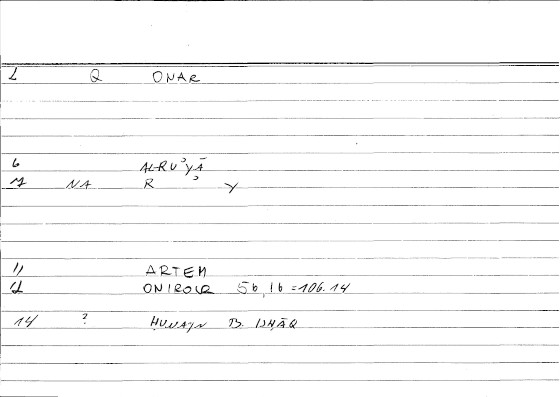 1 Q ONAR
6 ALRUʾYĀ
7 NA R ʾ Y
11 ARTEM
12 ONIROCR 56,16 = 106.14
14 ? ḤUNAYN B. ISḤĀQ